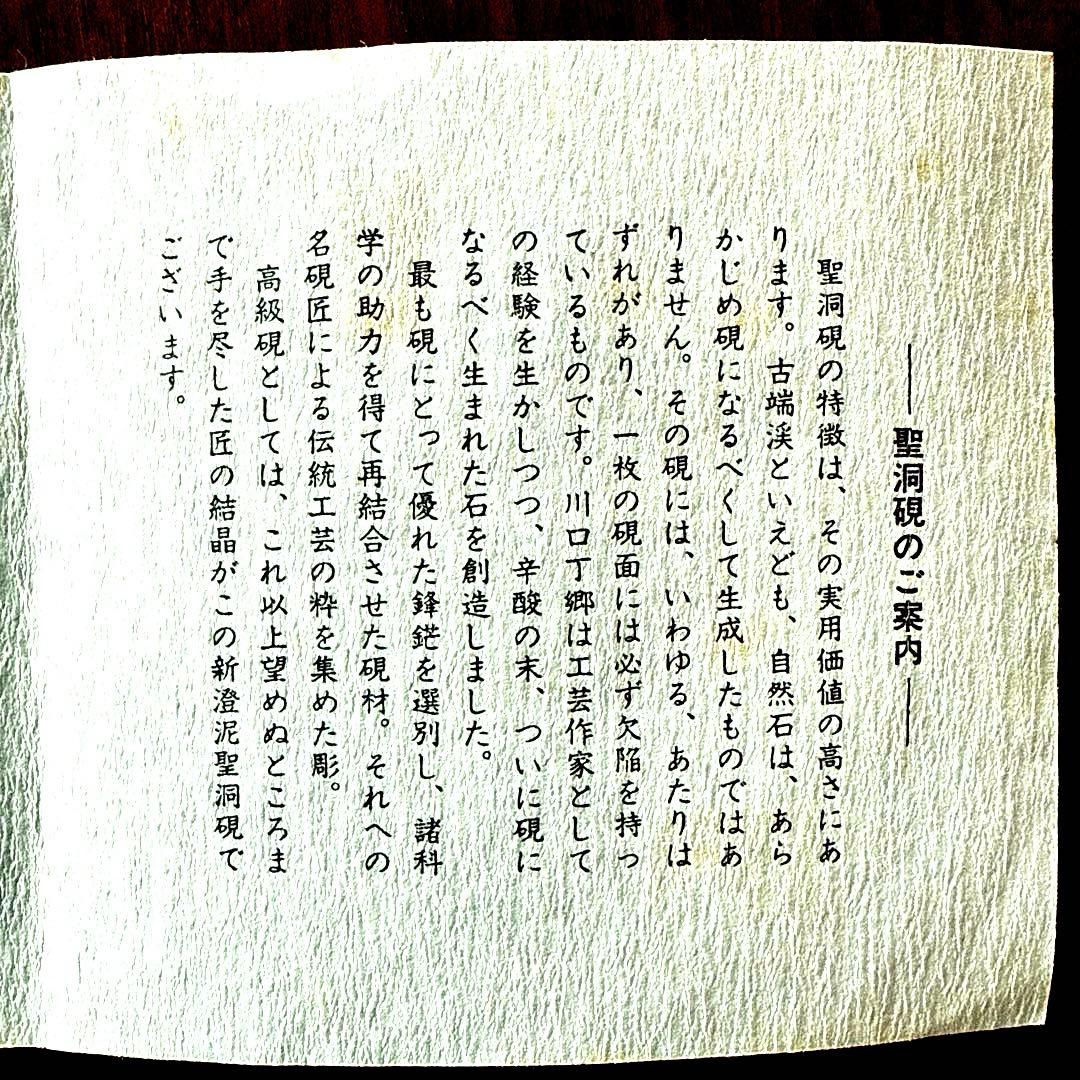 ―― 聖洞硯のご案内 ――
聖洞硯の特徴は、その実用価値の高さにあ
ります。古端渓といえども、自然石は、あら
かじめ硯になるべくして生成したものではあ
りません。その硯には、いわゆる、あたりは
ずれがあり、一枚の硯面には必ず欠陥を持っ
ているものです。川口丁郷は工芸作家として
の経験を生かしつつ、辛酸の末、ついに硯に
なるべく生まれた石を創造しました。
最も硯にとって優れた鋒鋩を選別し、諸科
学の助力を得て再結合させた硯材。それへの
名硯匠による伝統工芸の粋を集めた彫。
高級硯としては、これ以上望めぬところま
で手を尽した匠の結晶がこの新澄泥聖洞硯で
ございます。